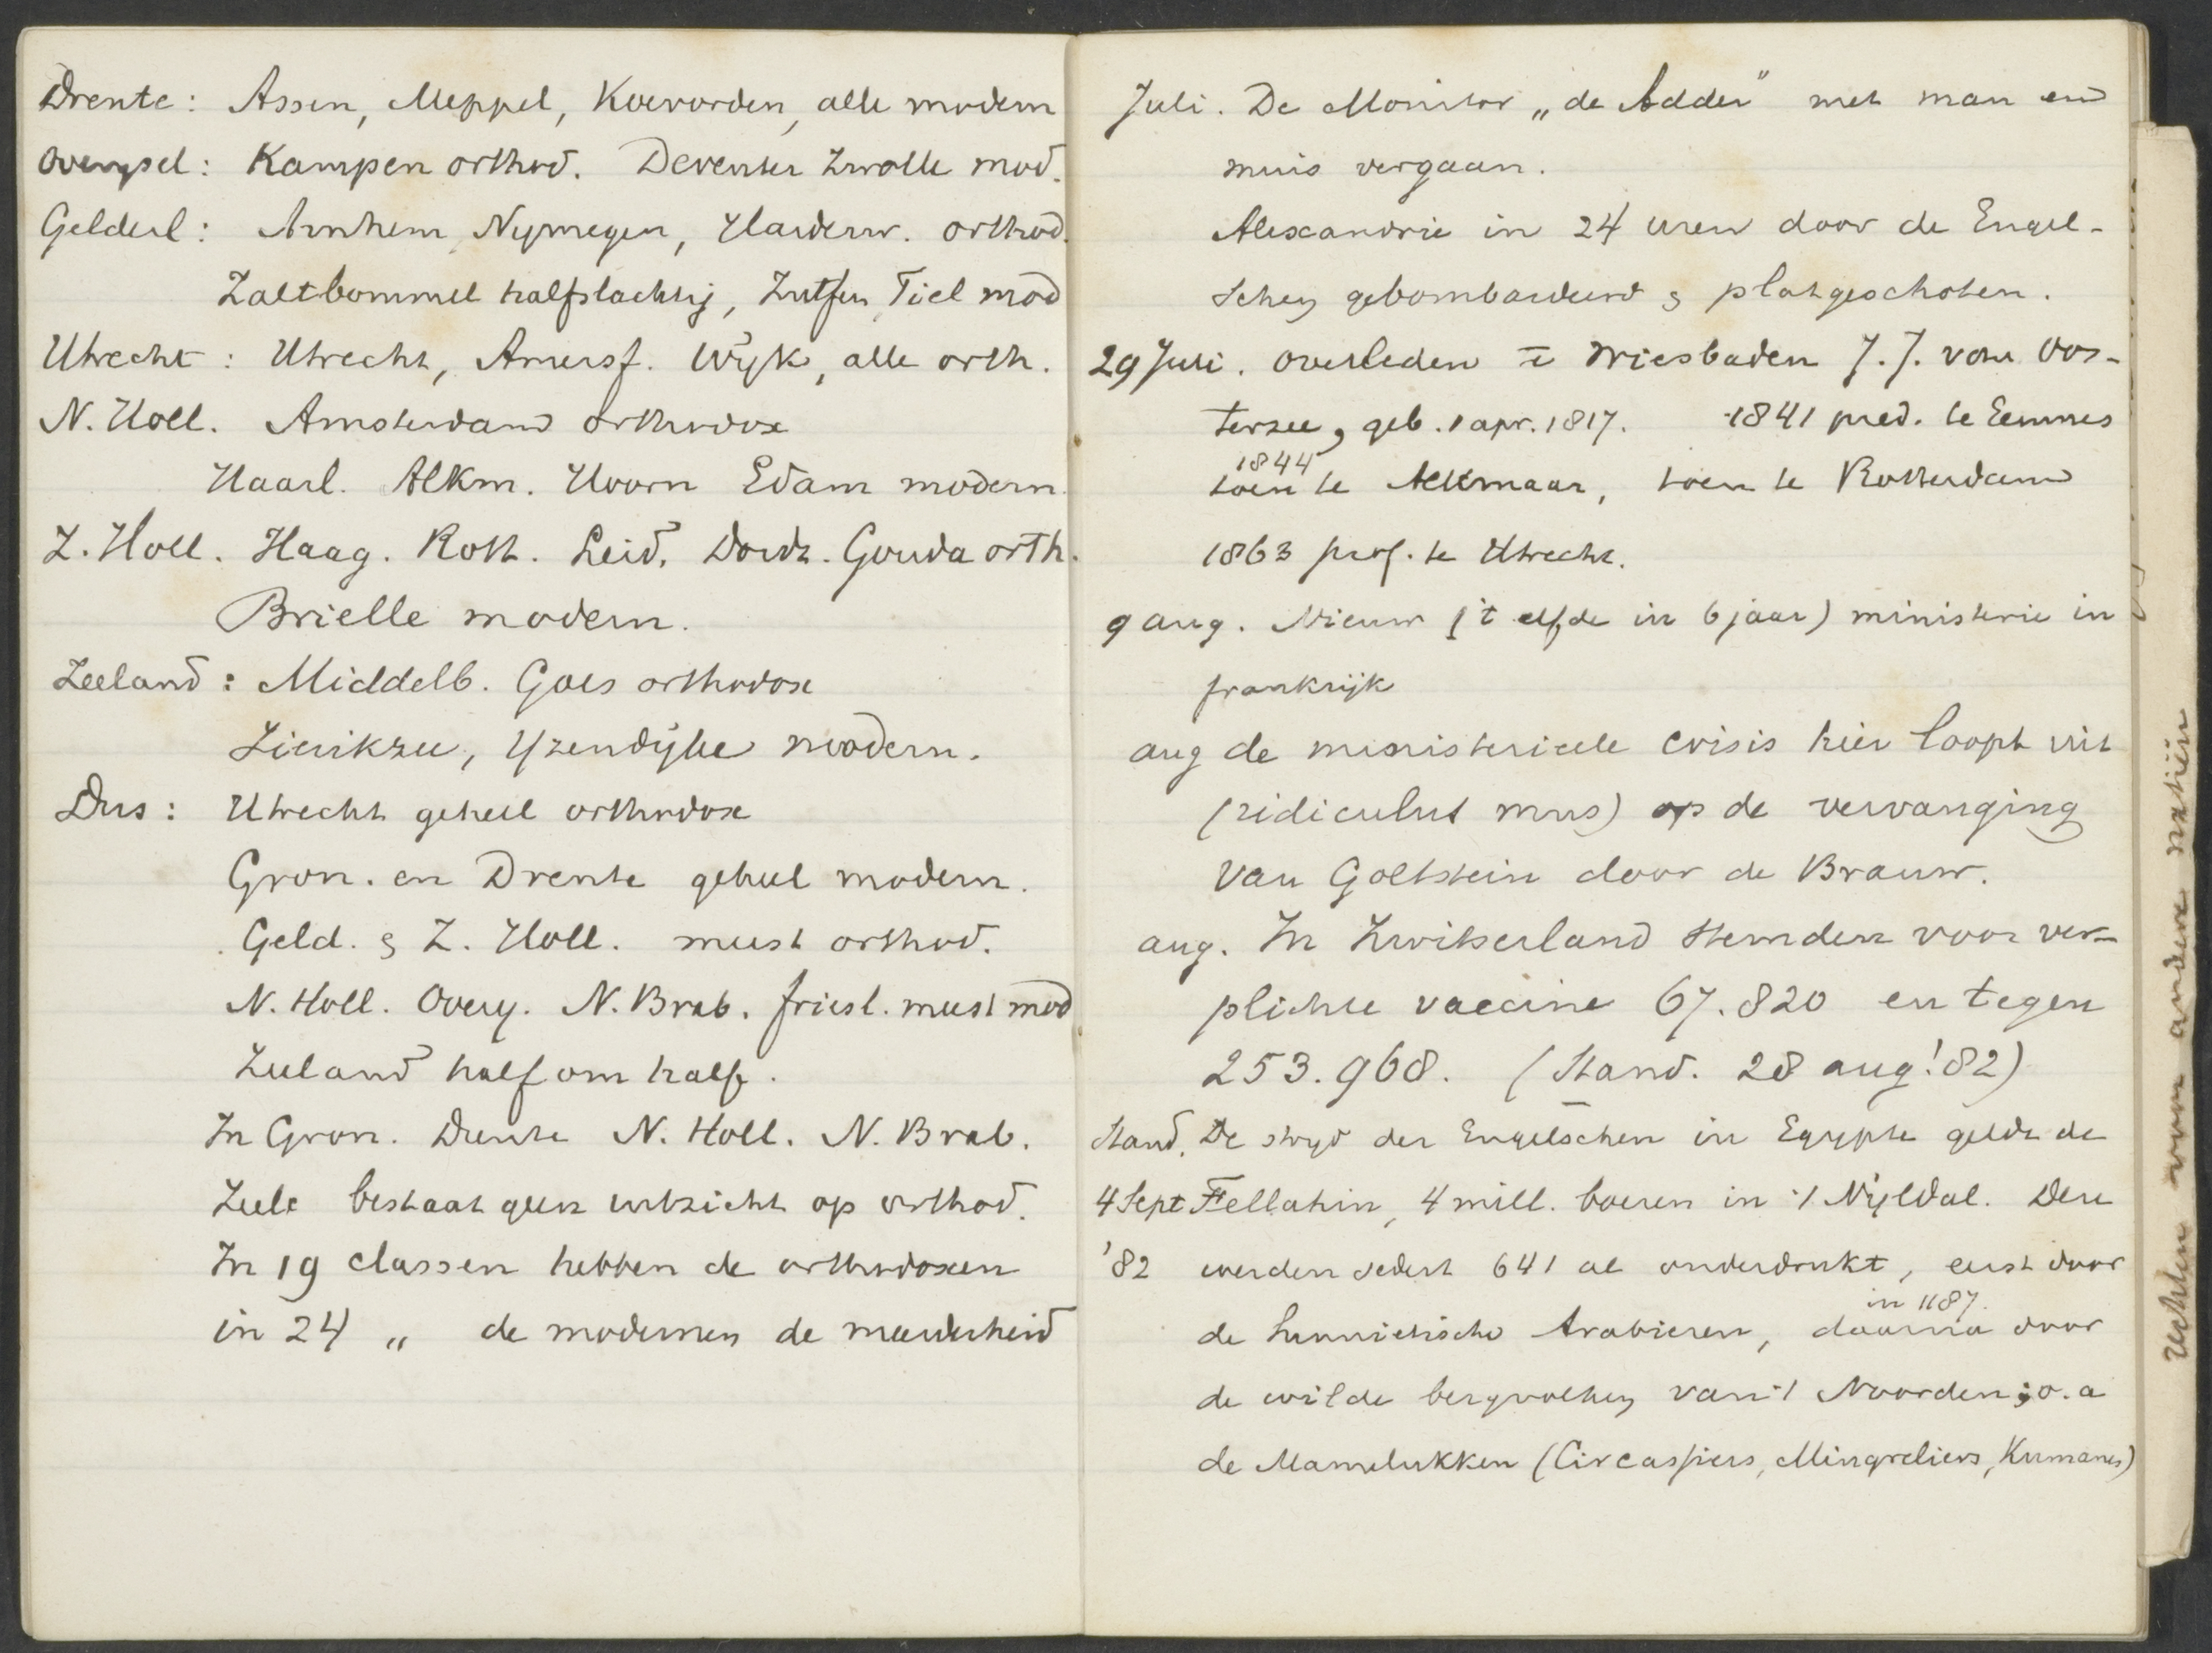 Drente: Assen, Meppel, Koevorden, alle modern
Overijsel: Kampen orthod. Deventer Zwolle mod.
Gelderl: Arnhem, Nijmegen, Harderw. orthod.
Zaltbommel halfslachtig, Zutfen, Tiel mod
Utrecht: Utrecht, Amersf. Wijk, alle orth.
N. Holl. Amsterdam orthodox
Haarl. Alkm. Hoorn Edam modern.
Z. Holl. Haag. Rott. Leid. Dordr. Gouda orth.
Brielle modern.
Zeeland: Middelb. Goes orthodox
Zierikzee, Yzendijke modern.
Dus: Utrecht geheel orthodox
Gron. en Drente geheel modern.
Geld. & Z. Holl. meest orthod.
N. Holl. Overy. N. Brab. Friesl. meest mod
Zeeland half om half.
In Gron. Drente N. Holl. N. Brab.
Zeel. bestaat geen uitzicht op orthod.
In 19 classen hebben de orthodoxen
in 24 „ de modernen de meerderheid
Juli. De Monitor „de Adder" met man en
muis vergaan.
Alexandrie in 24 uren door de Engel-
schen gebombardeerd & platgeschoten.
29 Juli. overleden te Wiesbaden J. J. van Oos-
terzee, geb. 1 apr. 1817. 1841 pred. te Eemnes
1844
toen te Alkmaar, toen te Rotterdam
1863 prof. te Utrecht.
9 aug. Nieuw ('t elfde in 6 jaar) ministerie in
frankrijk
aug de ministerieele crisis hier loopt uit
(ridiculus mus) op de vervanging
van Goltstein door de Brauw.
aug. In Zwitserland stemden voor ver-
plichte vaccine 67.820 en tegen
253.968. (Stand. 28 aug! 82)
Stand. De strijd der Engelschen in Egypte geldt de
4 Sept Fellahin, 4 mill. boeren in 't Nijldal. Deze
'82 werden sedert 641 al onderdrukt, eerst door
in 1187.
de Sunnietische Arabieren, daarna door
de wilde bergvolken van 't Noorden; o.a
de Mamelukken (Circassiers, Mingreliers, Kumanes)
rechten van andere natiën